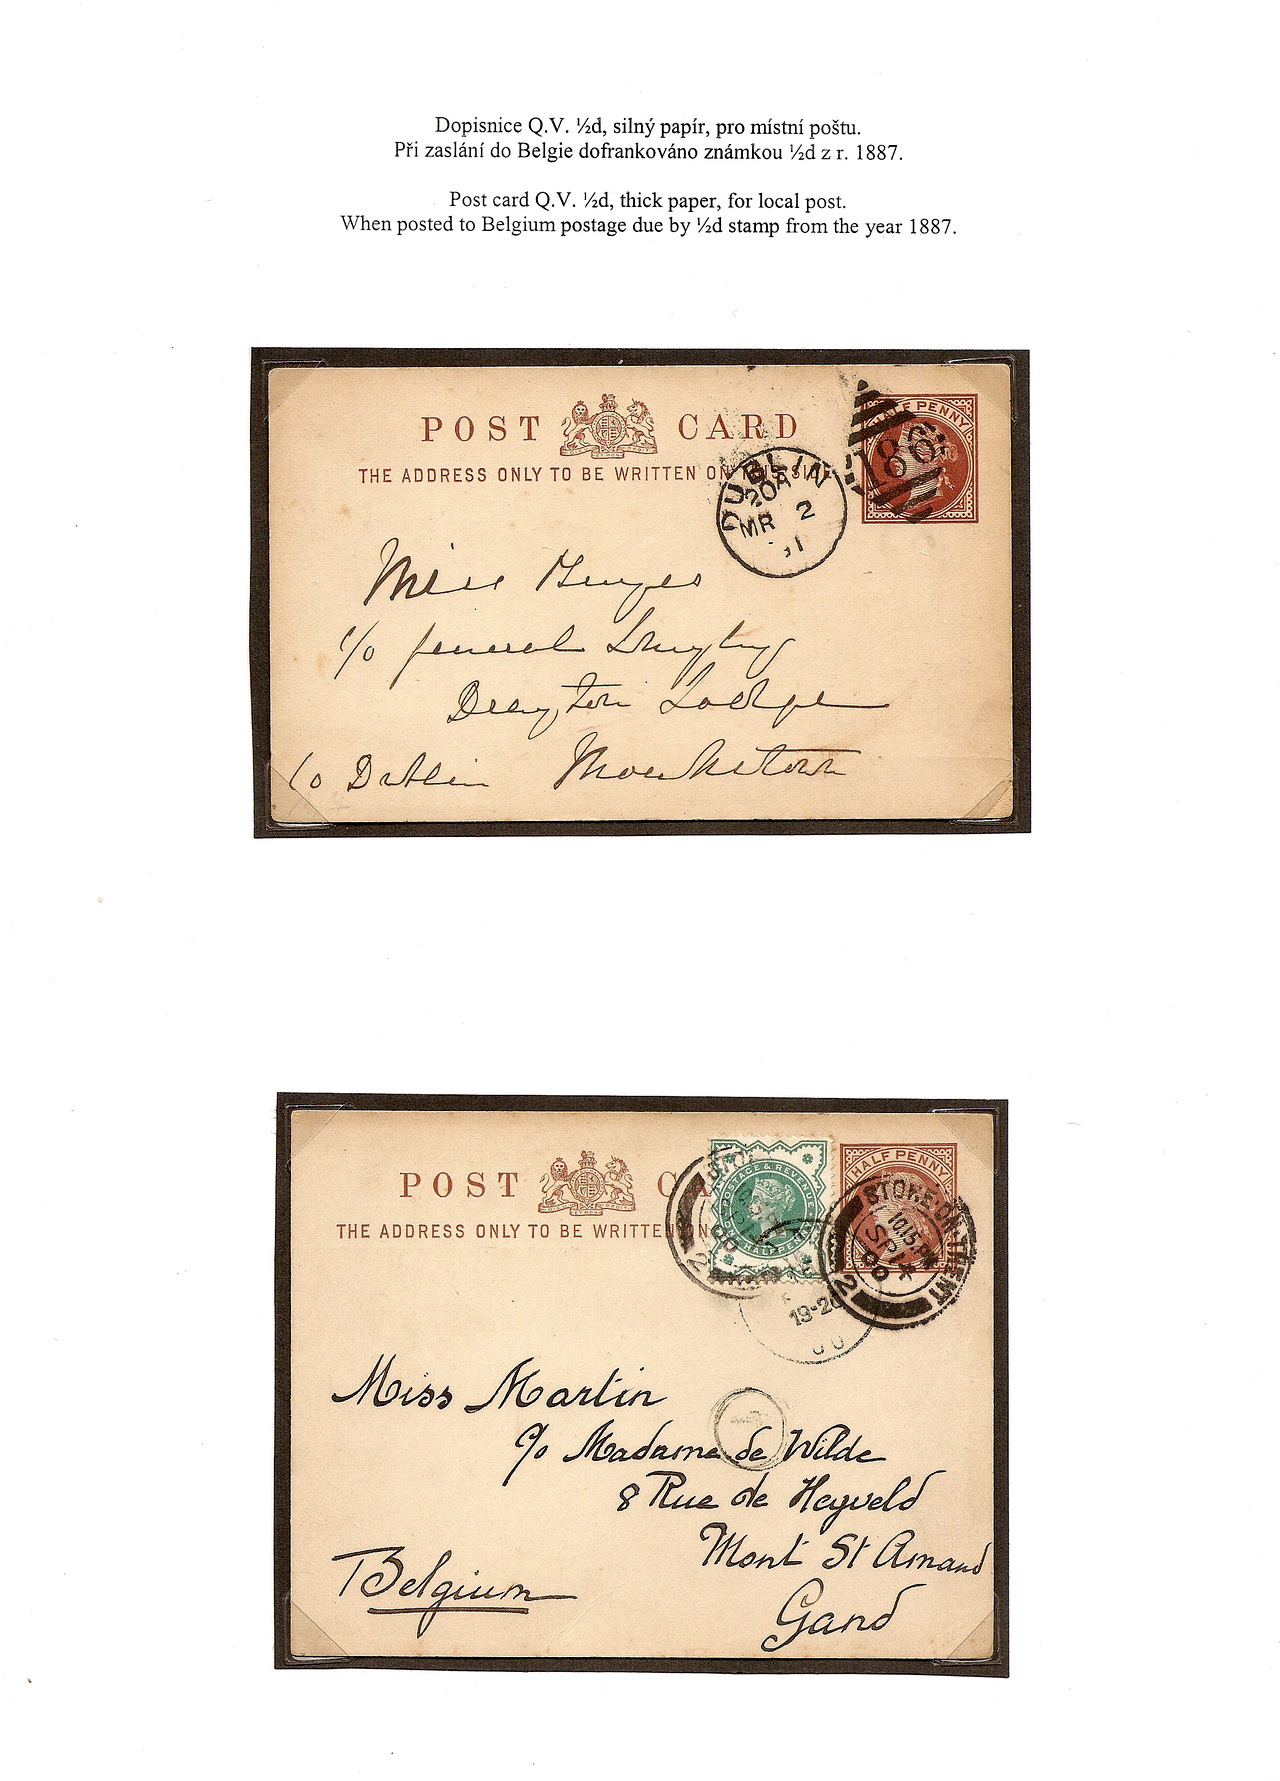 Dopisnice Q.V. ½d, silný papír, pro místní poštu.
Při zaslání do Belgie dofrankováno známkou ½d z r. 1887.
Post card Q.V. ½d, thick paper, for local post.
When posted to Belgium postage due by ½d stamp from the year 1887.
POST CARD
THE ADDRESS ONLY TO BE WRITTEN ON THIS SIDE
HALF PENNY
186
DUBLIN
MR 2
91
Miss
c/o General Langley
Drayton Lodge
Co Dublin Monkstown
POST CA
THE ADDRESS ONLY TO BE WRITTEN ON
POSTAGE & REVENUE
ONE HALFPENNY
HALF PENNY
STOKE-ON-TRENT
10.15 PM
SP 14
00
2
19-20
Miss Martin
c/o Madame de Wilde
8 Rue de Heyveld
Mont St Amand
Belgium
Gand